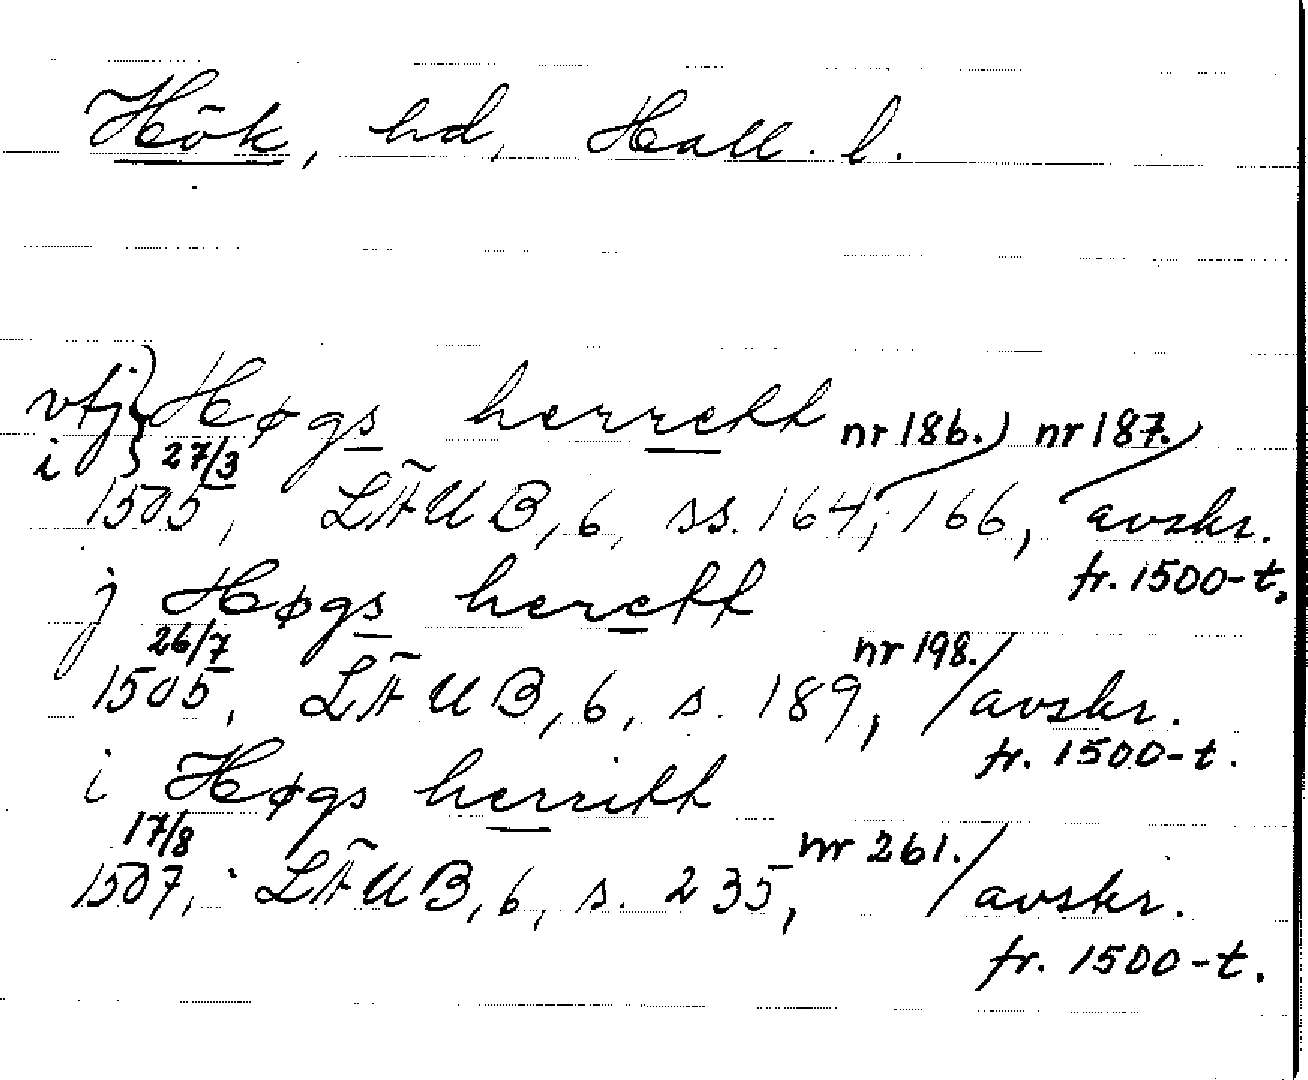 Hök, hd, Hall. l.
vtj } Høgs herrett nr 186.) nr 187.)
i } 27/3
1505, LÄUB, 6, ss. 164, 166, avskr.
fr. 1500-t.
j Høgs herett
26/7 nr 198./
1505, LÄUB, 6, s. 189, avskr.
fr. 1500-t.
i Høgs herritt
17/8 nr 261./
1507, LÄUB, 6, s. 235, avskr.
fr. 1500-t.